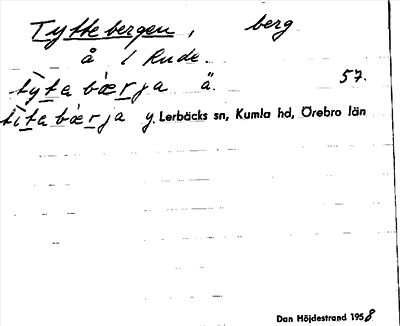 Tyttebergen, berg
å l Rude.
tỳta bærja ä. 57.
tìta bærja y. Lerbäcks sn, Kumla hd, Örebro län
Dan Höjdestrand 1958